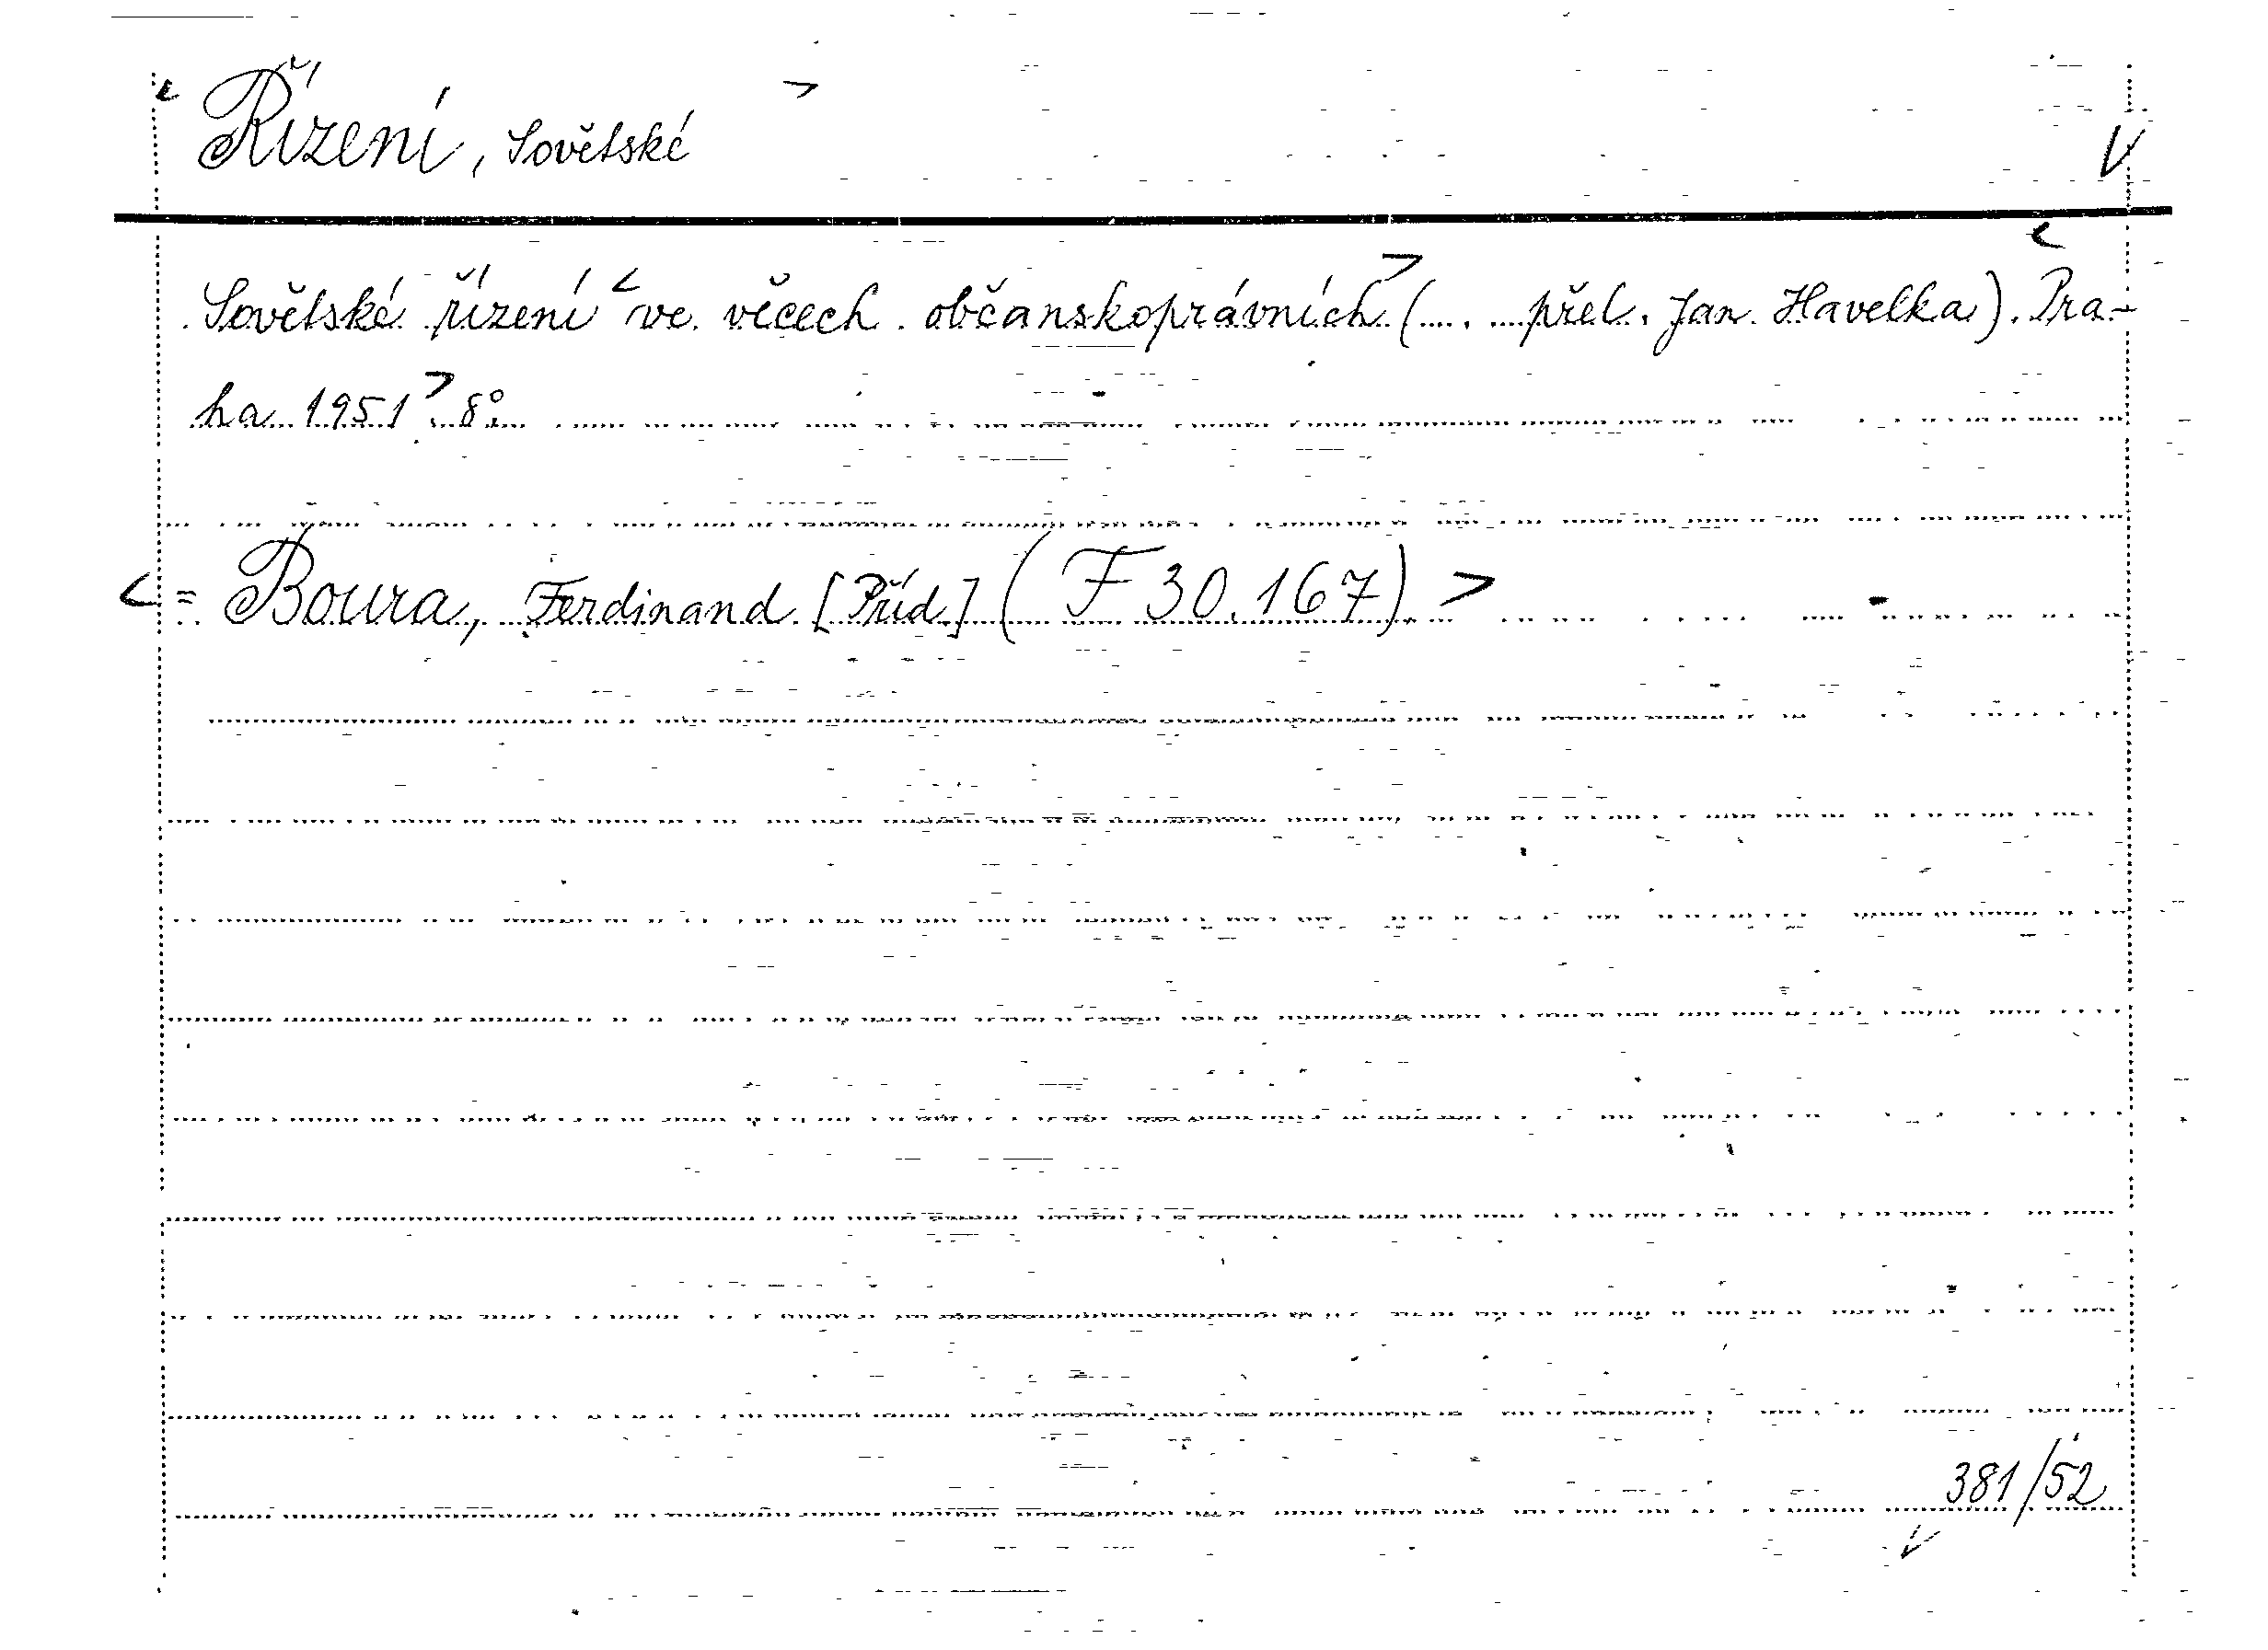 < Řízení, Sovětské > V
Sovětské řízení < ve věcech občanskoprávních > (... přel. Jan Havelka). < Pra-
ha 1951 >. 8°.
< = Boura, Ferdinand [Příd] (F 30.167). >
381/52